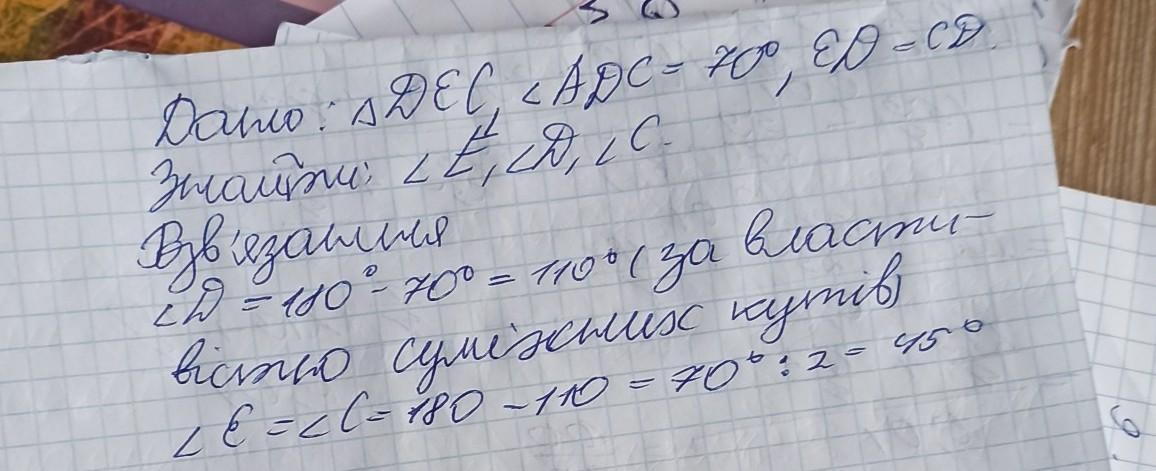 Дано: △DEC, ∠ADC = 70°, ED = CD.
Знайти: ∠E, ∠D, ∠C.
Розв'язання
∠D = 180° - 70° = 110° (за власти-
вістю суміжних кутів)
∠E = ∠C = 180 - 110 = 70° : 2 = 45°